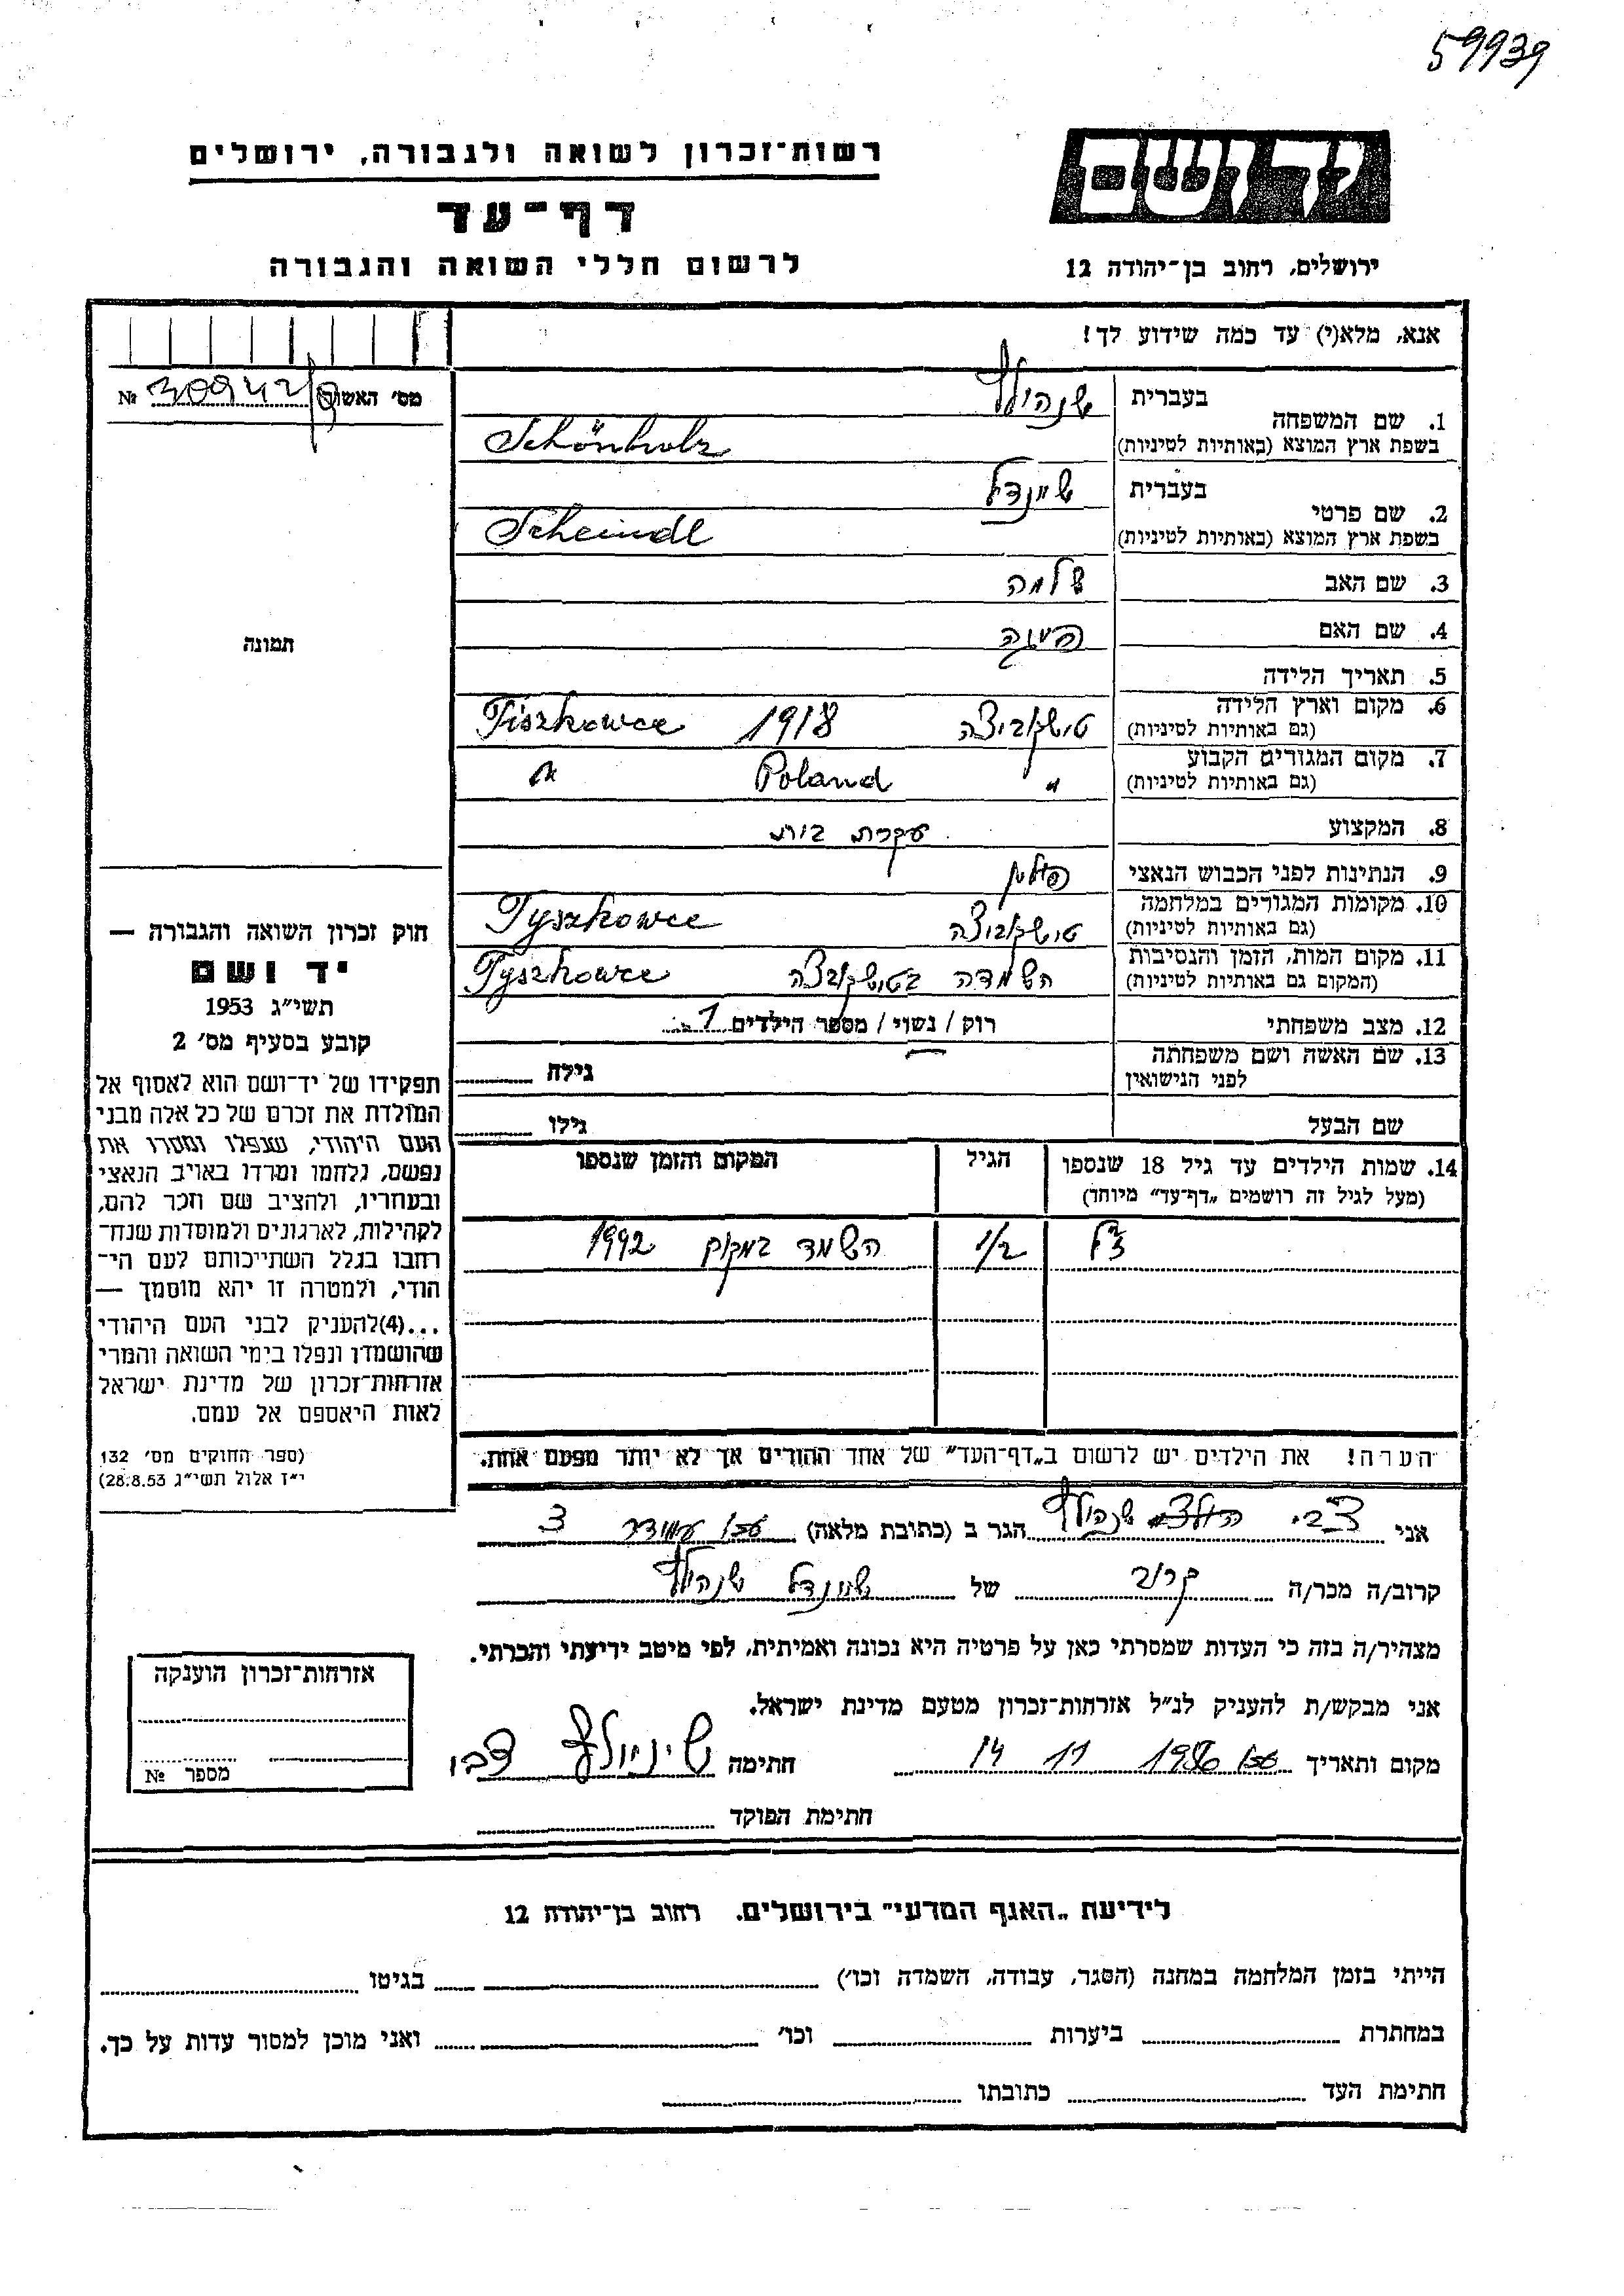 59939
יד ושם
רשות־זכרון לשואה ולגבורה, ירושלים
דף־עד
ירושלים, רחוב בן־יהודה 12
לרשום חללי השואה והגבורה
אנא, מלא(י) עד כמה שידוע לך!
מס׳ האשה № 30942/8
1. שם המשפחה בעברית שנהולץ
בשפת ארץ המוצא (באותיות לטיניות) Schönholz
2. שם פרטי בעברית שיינדל
בשפת ארץ המוצא (באותיות לטיניות) Scheindl
3. שם האב שלמה
4. שם האם פייגה
תמונה
5. תאריך הלידה
6. מקום וארץ הלידה (גם באותיות לטיניות) טישקוביצה 1918 Tiszkowce
7. מקום המגורים הקבוע (גם באותיות לטיניות) " Poland "
8. המקצוע עקרת בית
9. הנתינות לפני הכבוש הנאצי פולין
10. מקומות המגורים במלחמה (גם באותיות לטיניות) טישקוביצה Tyszkowce
11. מקום המות, הזמן והנסיבות (המקום גם באותיות לטיניות) השמדה בטישקוביצה Tyszkowce
12. מצב משפחתי רוק / נשוי / מספר הילדים 1
13. שם האשה ושם משפחתה לפני הנישואין גילה
שם הבעל גילו
14. שמות הילדים עד גיל 18 שנספו (מעל לגיל זה רושמים „דף־עד״ מיוחד) הגיל המקום והזמן שנספו
השמד במקום 1942
הערה! את הילדים יש לרשום ב„דף־העד״ של אחד ההורים אך לא יותר מפעם אחת.
חוק זכרון השואה והגבורה —
יד ושם
תשי״ג 1953
קובע בסעיף מס׳ 2
תפקידו של יד־ושם הוא לאסוף אל
המולדת את זכרם של כל אלה מבני
העם היהודי, שנפלו ומסרו את
נפשם, נלחמו ומרדו באויב הנאצי
ובעוזריו, ולהציב שם וזכר להם,
לקהילות, לארגונים ולמוסדות שנח־
רחבו בגלל השתייכותם לעם הי־
הודי, ולמטרה זו יהא מוסמך —
...(4)להעניק לבני העם היהודי
שהושמדו ונפלו בימי השואה והמרי
אזרחות־זכרון של מדינת ישראל
לאות היאספם אל עמם.
(ספר החוקים מס׳ 132
י״ז אלול תשי״ג 28.8.53)
אני צבי שנהולץ הגר ב (כתובת מלאה) עכו
קרוב/ה מכר/ה קרוב של שיינדל שנהולץ
מצהיר/ה בזה כי העדות שמסרתי כאן על פרטיה היא נכונה ואמיתית, לפי מיטב ידיעתי והכרתי.
אני מבקש/ת להעניק לנ״ל אזרחות־זכרון מטעם מדינת ישראל.
מקום ותאריך עכו 1986 11 14 חתימה שינהולץ צבי
חתימת הפוקד
אזרחות־זכרון הוענקה
מספר №
לידיעת „האגף המדעי״ בירושלים. רחוב בן־יהודה 12
הייתי בזמן המלחמה במחנה (הסגר, עבודה, השמדה וכו׳) בגיטו
במחתרת ביערות וכו׳ ואני מוכן למסור עדות על כך.
חתימת העד כתובתו